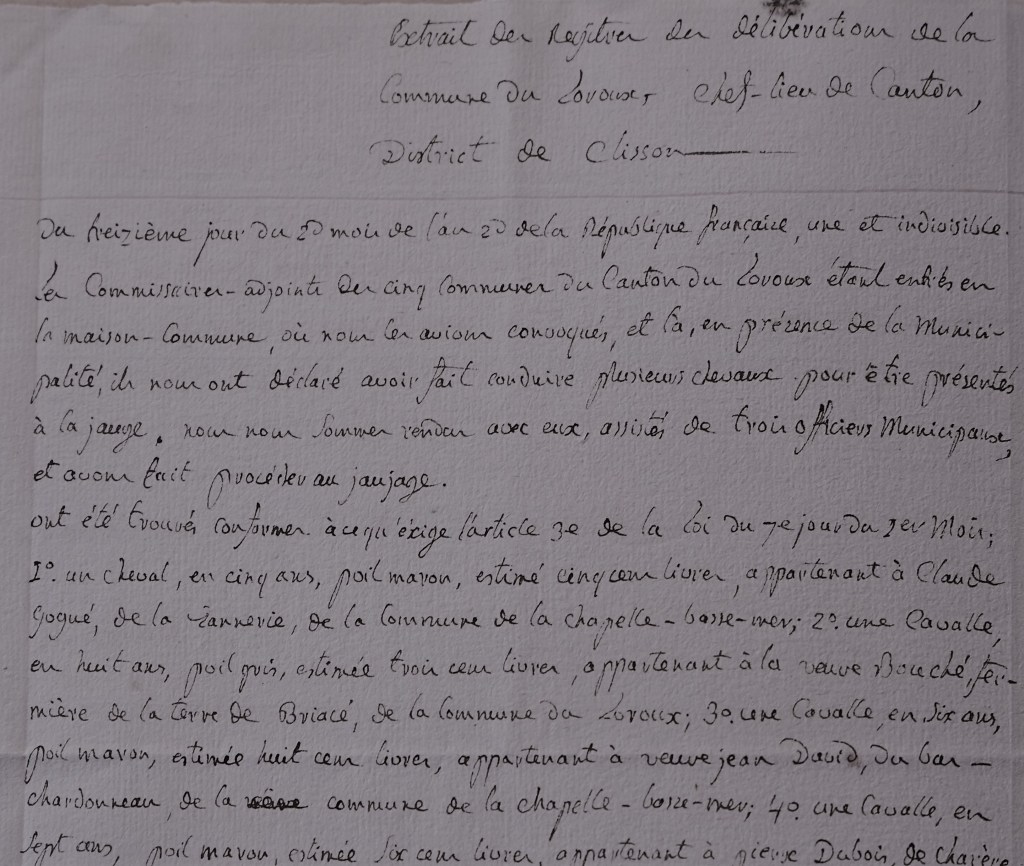 Extrait des Registres des délibérations de la
Commune du Loroux, chef-lieu de Canton,
District de Clisson
Du treizième jour du 2d mois de l'an 2d de la République française, une et indivisible.
Les Commissaires-adjoints des cinq Communes du Canton du Loroux étant entrés en
la maison-Commune, où nous les avions convoqués, et là, en présence de la Munici-
palité, ils nous ont déclaré avoir fait conduire plusieurs chevaux pour être présentés
à la jauge. nous nous sommes rendus avec eux, assistés de trois officiers Municipaux,
et avons fait procéder au jaujage.
ont été trouvés conformes à ce qu'éxige l'article 3e de la Loi du 7e jour du 1er Mois;
1o. un cheval, en cinq ans, poil maron, estimé cinq cens livres, appartenant à Claude
gogué, de la , de la Commune de la chapelle-basse-mer; 2o. une Cavalle,
en huit ans, poil gris, estimée trois cens livres, appartenant à la veuve Bouché, fer-
mière de la terre de Briacé, de la Commune du Loroux; 3o. une Cavalle, en six ans,
poil maron, estimée huit cens livres, appartenant à veuve jean David, du bas-
chardonneau, de la commune de la chapelle-basse-mer; 4o. une Cavalle, en
sept ans, poil maron, estimée six cens livres, appartenant à pierre Dubois, de